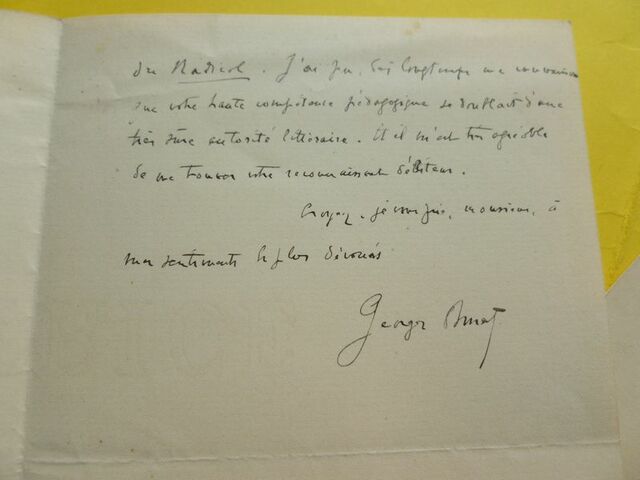 du Radical. J'ai pu, dès longtemps me convaincre
que votre haute compétence pédagogique se doublait d'une
très sûre autorité littéraire. Et il m'est très agréable
de me trouver votre reconnaissant débiteur.
Croyez, je vous prie, monsieur, à
mes sentiments les plus dévoués
Georges